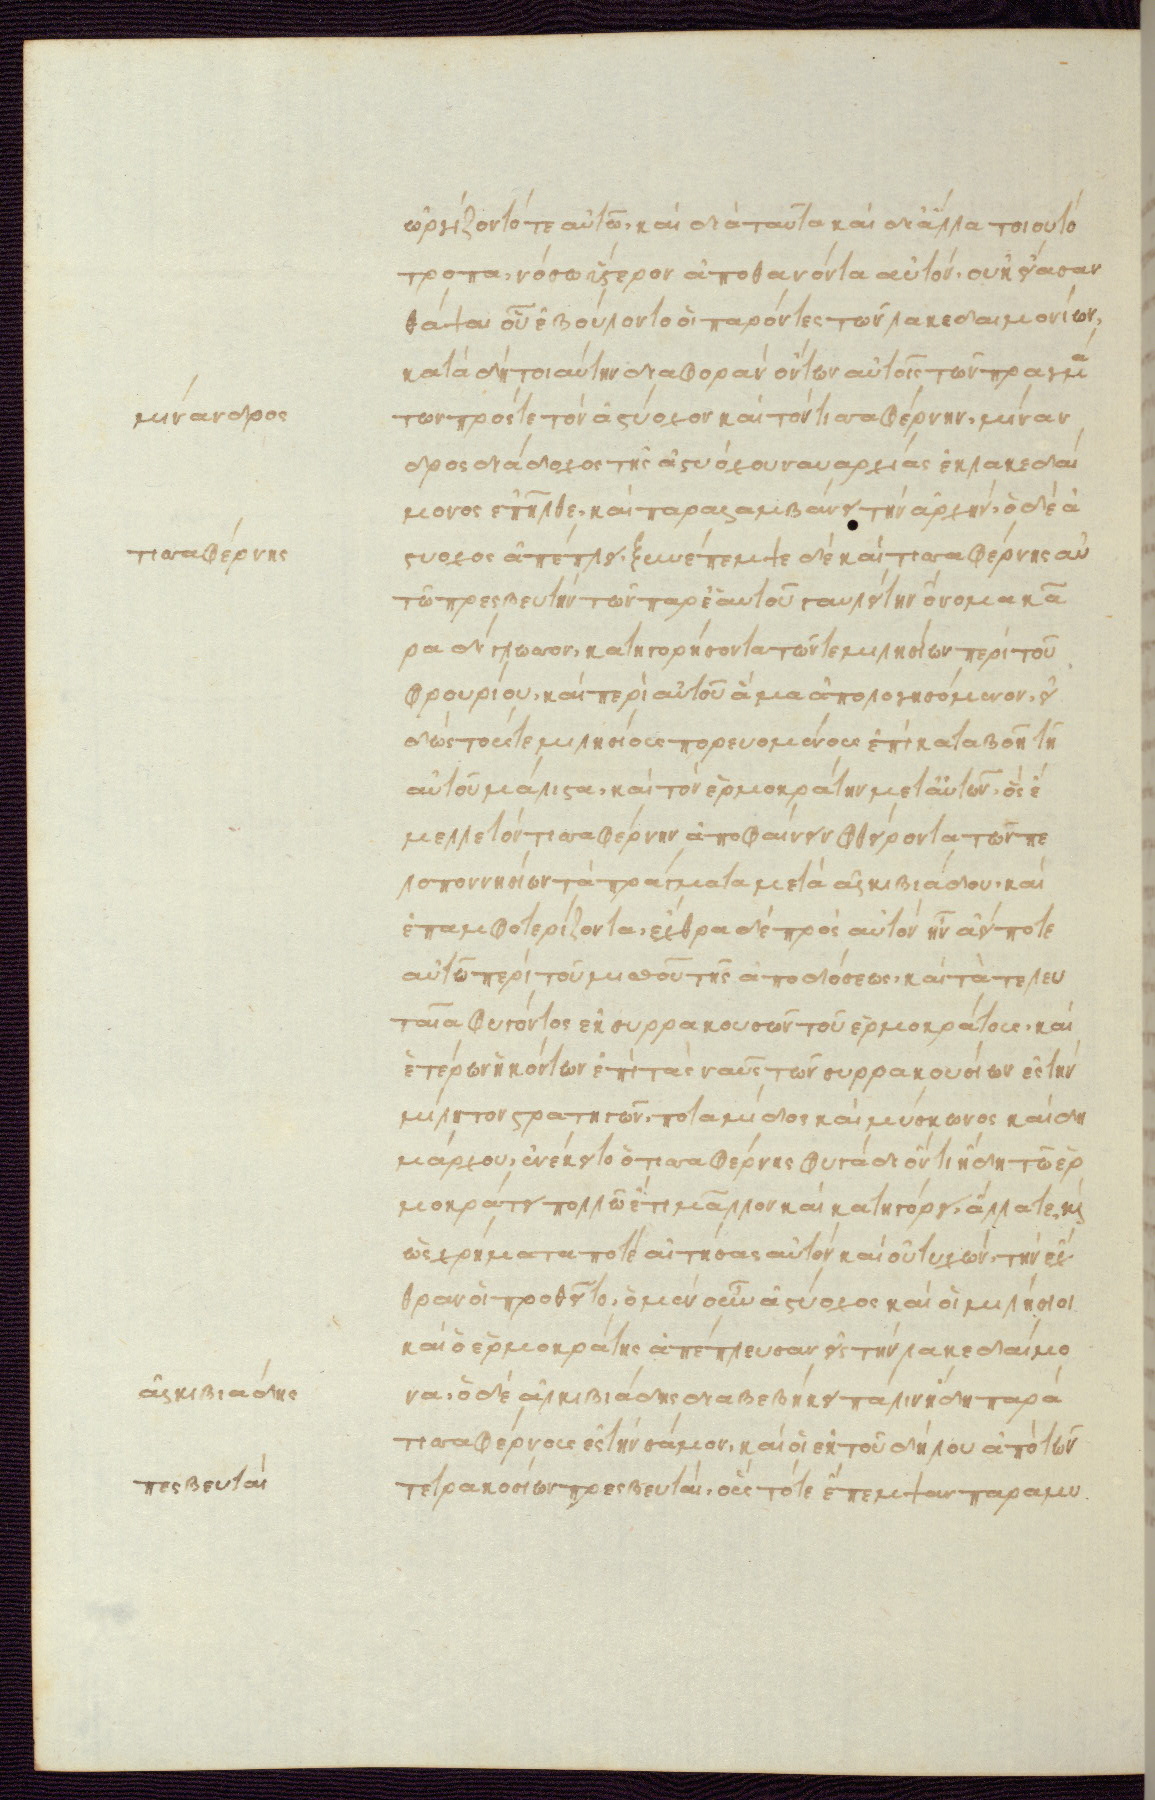 ὠργίζοντό τε αὐτῶ, καὶ διὰ ταῦτα καὶ δι ἄλλα τοιουτό
τροπα, νόσω ὕστερον ἀποθανόντα αὐτόν, οὐκ εἴασαν
θάψαι οὗ ἐβούλοντο οἱ παρόντες τῶν λακεδαιμονίων,
κατὰ δὴ τοιαύτην διαφορὰν ὄντων αὐτοῖς τῶν πραγμά
μίνδαρος
των πρός τε τὸν ἀστύοχον καὶ τὸν τισσαφέρνην, μίναν
δρος διάδοχος τῆς ἀστυόχου ναυαρχίας ἐκ λακεδαί
μονος ἐπῆλθε, καὶ παραλαμβάνει τὴν ἀρχήν, ὁ δὲ ἀ
τισσαφέρνης
στυοχος ἀπέπλει, ξυνέπεμψε δὲ καὶ τισσαφέρνης αὐ
τῶ πρεσβευτὴν τῶν παρ ἑαυτοῦ γαυλείτην ὄνομα κᾶ
ρα δίγλωσσον, κατηγορήσοντα τῶν τε μιλησίων περὶ τοῦ
φρουρίου, καὶ περὶ αὐτοῦ ἅμα ἀπολογησόμενον, εἰ
δὼς τούς τε μιλησίους πορευομένους ἐπὶ καταβοῆ τῆ
αὐτοῦ μάλιστα, καὶ τὸν ἑρμοκράτην μετ αὐτῶν, ὃς ἔ
μελλε τὸν τισσαφέρνην ἀποφαίνειν φθείροντα τῶν πε
λοποννησίων τὰ πράγματα μετὰ ἀλκιβιάδου, καὶ
ἐπαμφοτερίζοντα, ἔχθρα δὲ πρὸς αὐτὸν ἦν ἀεί ποτε
αὐτῶ περὶ τοῦ μισθοῦ τῆς ἀποδόσεως, καὶ τὰ τελευ
ταῖα φυγόντος ἐκ συρρακουσῶν τοῦ ἑρμοκράτους, καὶ
ἑτέρων ἡκόντων ἐπὶ τὰς ναῦς τῶν συρρακουσίων ἐς τὴν
μίλητον στρατηγῶν, ποταμίδος καὶ μύσκωνος καὶ δη
μάρχου, ἐνέκειτο ὁ τισσαφέρνης φυγάδι ὄντι ἤδη τῶ ἑρ
μοκράτει πολλῶ ἔτι μᾶλλον καὶ κατηγόρει, ἄλλα τε, καὶ
ὡς χρήματα ποτὲ αἰτήσας αὐτὸν καὶ οὐ τυχών, τὴν ἔχ
θραν οἱ προθεῖτο, ὁ μὲν οὖν ἀστύοχος καὶ οἱ μιλήσιοι
καὶ ὁ ἑρμοκράτης ἀπέπλευσαν εἰς τὴν λακεδαίμο
ἀλκιβιάδης
να, ὁ δὲ ἀλκιβιάδης διαβεβήκει πάλιν ἤδη παρὰ
τισσαφέρνους ἐς τὴν σάμον, καὶ οἱ ἐκ τοῦ δήλου ἀπὸ τῶν
πεσβευταὶ
τετρακοσίων πρεσβευταί, οὓς τότε ἔπεμψαν παραμυ